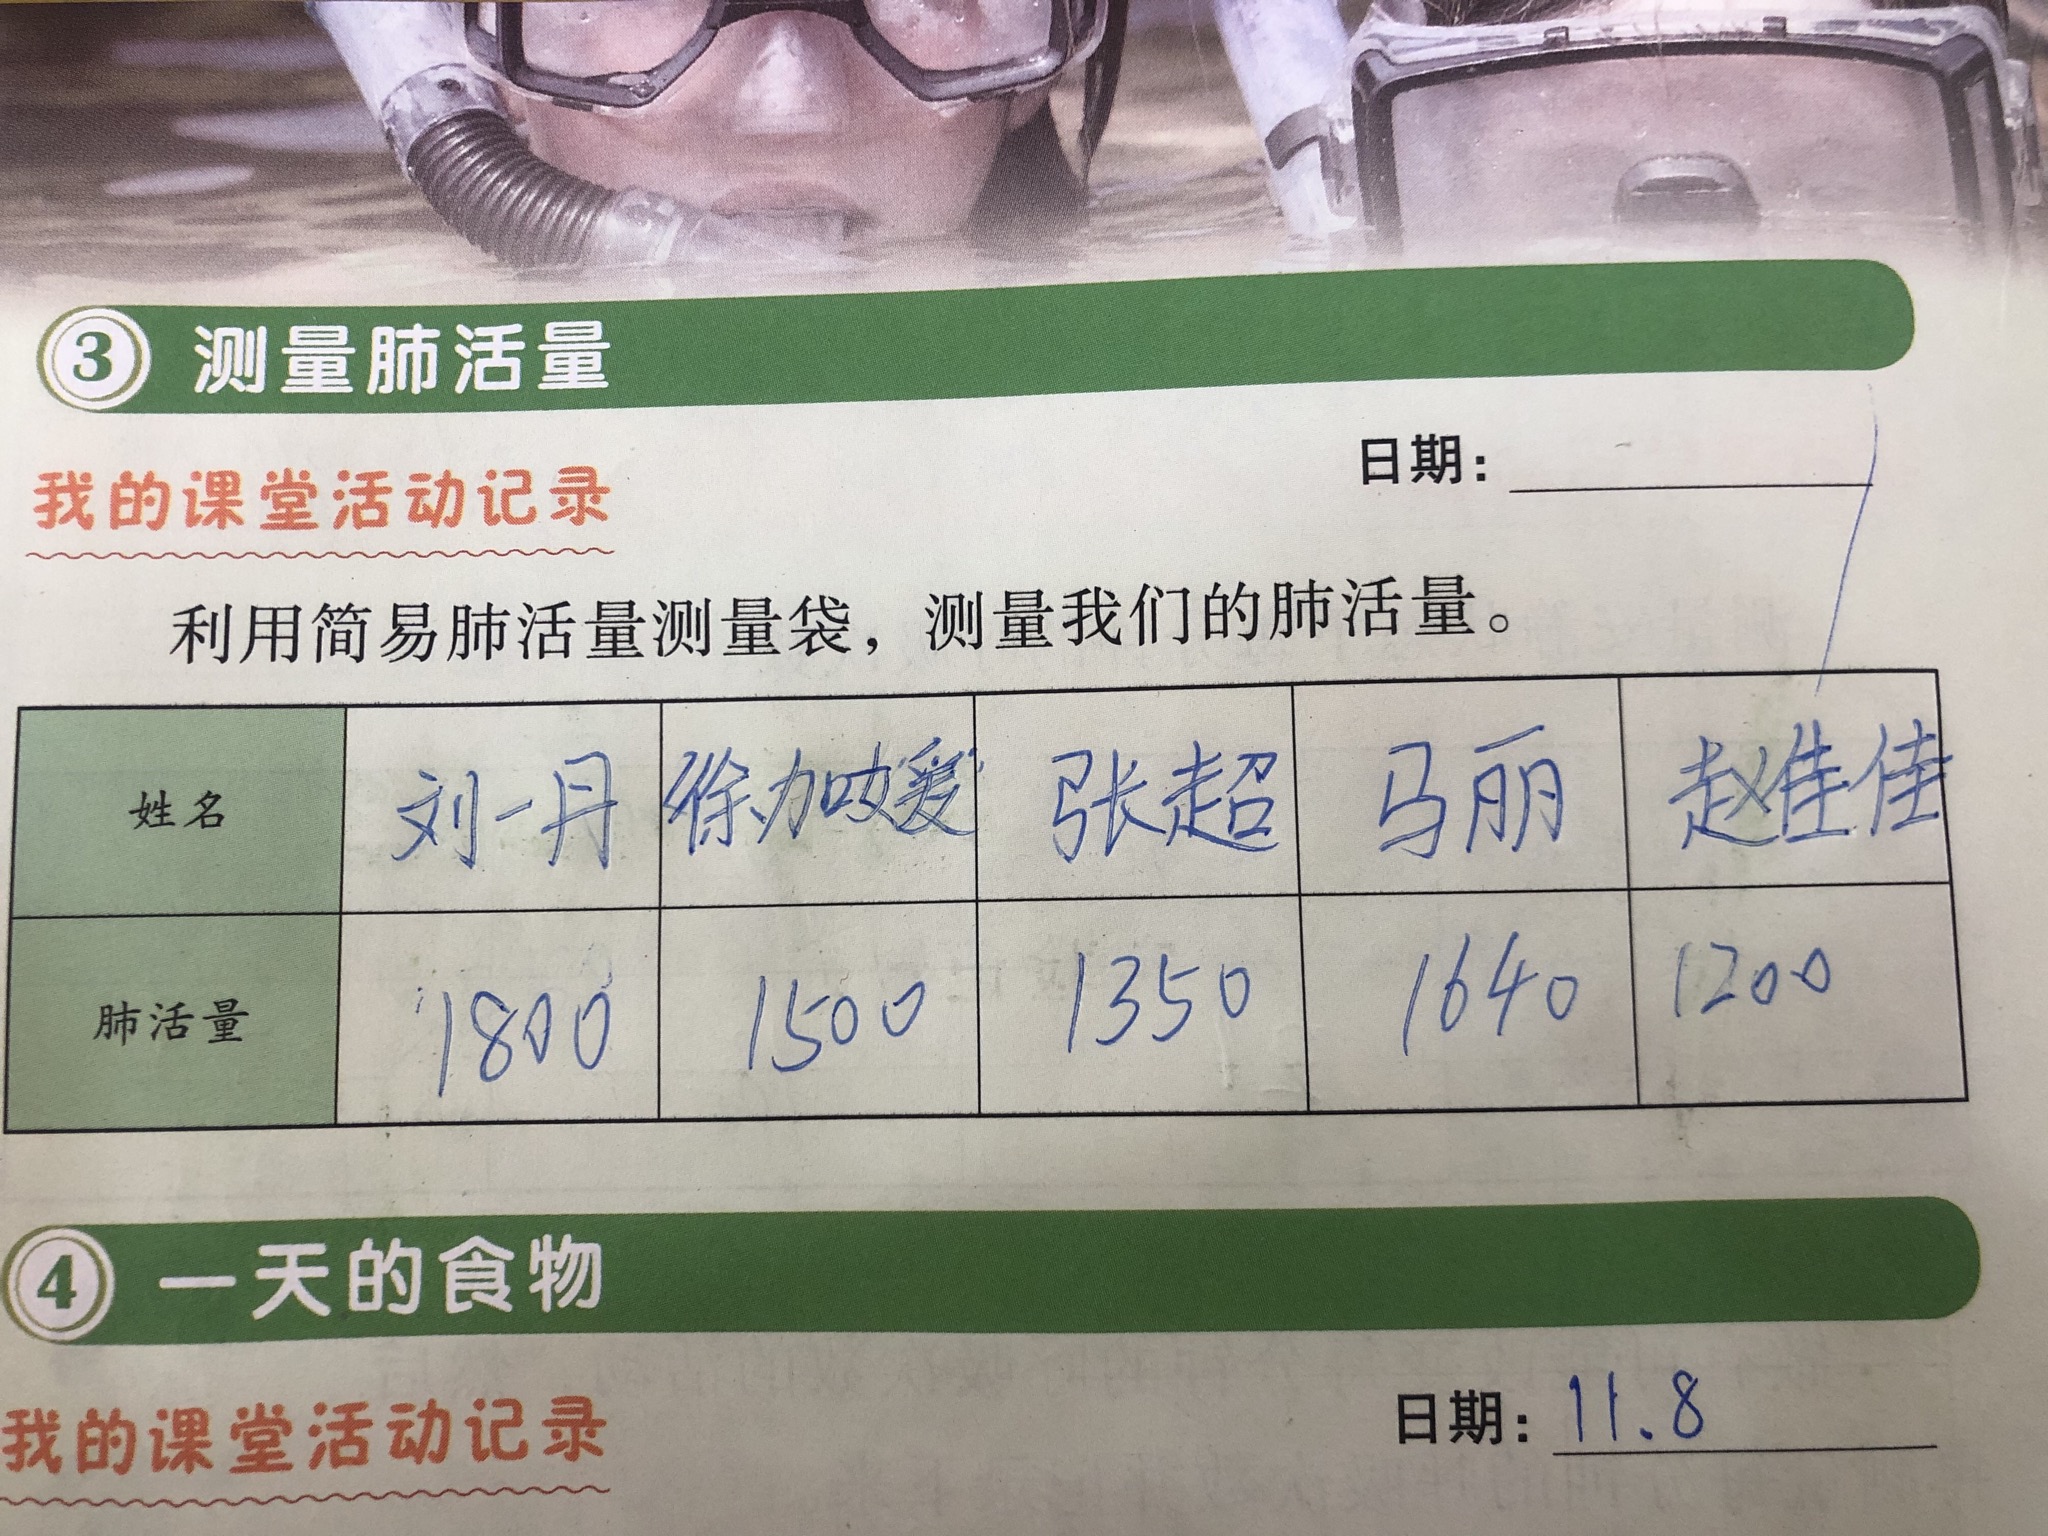 3 测量肺活量
日期：
我的课堂活动记录
利用简易肺活量测量袋，测量我们的肺活量。
姓名 刘一丹 徐加媛 张超 马丽 赵佳佳
肺活量 1800 1500 1350 1640 1200
4 一天的食物
日期：11.8
我的课堂活动记录